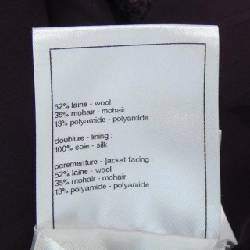 52% laine - wool
35% mohair - mohair
13% polyamide - polyamide
doublure - lining :
100% soie - silk
parementure - jacket facing
52% laine - wool
35% mohair - mohair
13% polyamide - polyamide